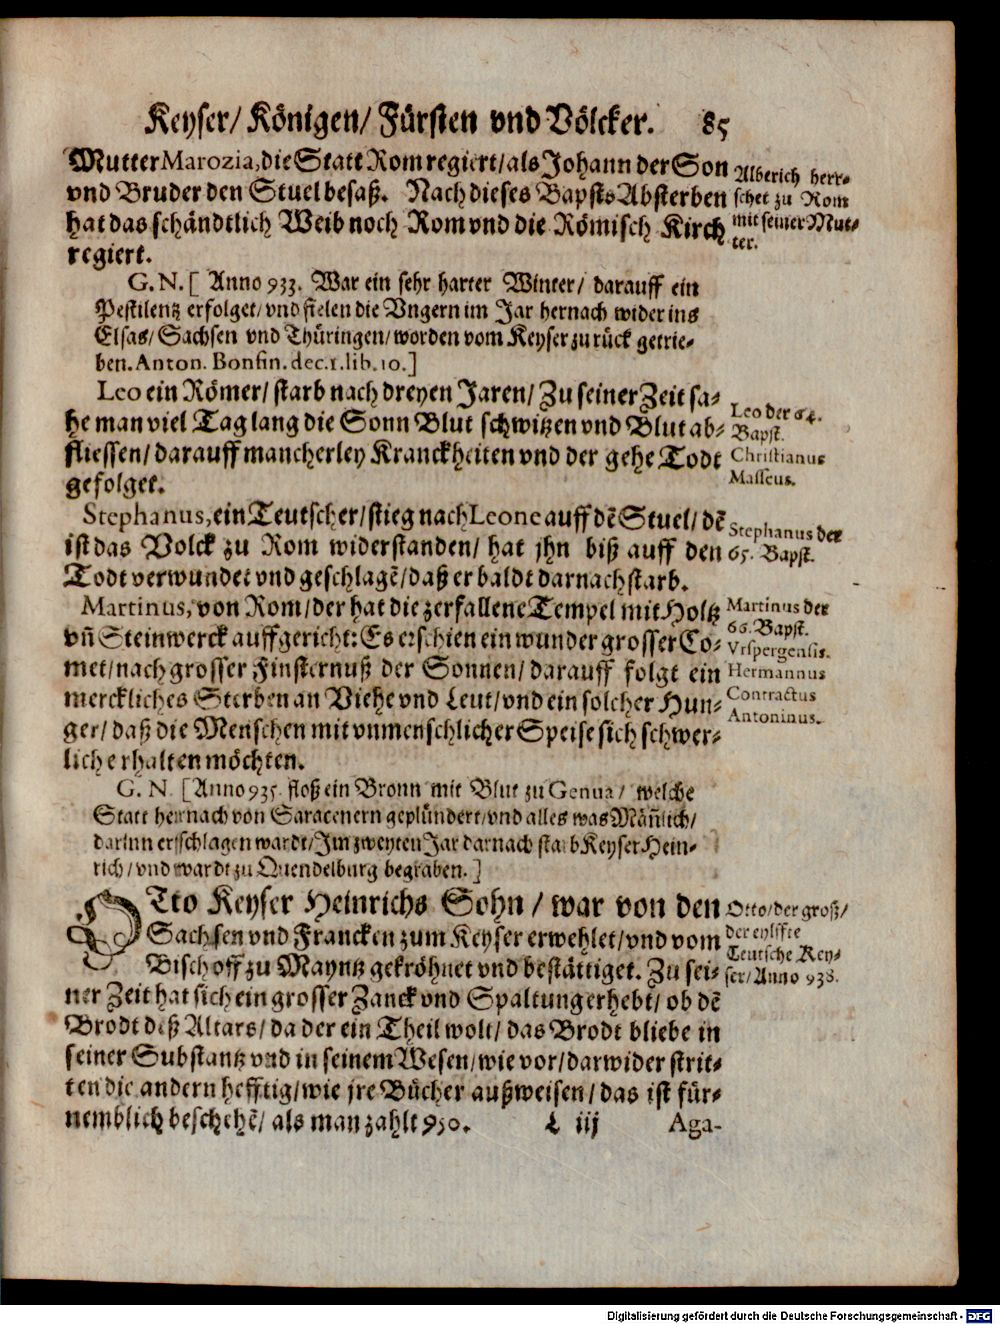 Keyser/ Königen/ Fürsten vnd Völcker. 85
Mutter Marozia, die Statt Rom regiert/ als Johann der Son
vnd Bruder den Stuel besaß. Nach dieses Bapsts Absterben
hat das schändtlich Weib noch Rom vnd die Römisch Kirch
regiert.
Alberich herr-
schet zu Rom
mit seiner Mut-
ter.
G. N. [ Anno 933. War ein sehr harter Winter/ darauff ein
Pestilentz erfolget/ vnd fielen die Vngern im Jar hernach wider ins
Elsas/ Sachsen vnd Thüringen/ worden vom Keyser zu rück getrie-
ben. Anton. Bonfin. dec. 1. lib. 10. ]
Leo ein Römer/ starb nach dreyen Jaren/ Zu seiner Zeit sa-
he man viel Tag lang die Sonn Blut schwitzen vnd Blut ab-
fliessen/ darauff mancherley Kranckheiten vnd der gehe Todt
gefolget.
Leo der 64.
Bapst.
Christianus
Masseus.
Stephanus, ein Teutscher/ stieg nach Leone auff dē Stuel/ dē
ist das Volck zu Rom widerstanden/ hat jhn biß auff den
Todt verwundet vnd geschlagē/ daß er baldt darnach starb.
Stephanus der
65. Bapst.
Martinus, von Rom/ der hat die zerfallene Tempel mit Holtz
vn̄ Steinwerck auffgericht: Es erschien ein wunder grosser Co-
met/ nach grosser Finsternuß der Sonnen/ darauff folgt ein
merckliches Sterben an Viehe vnd Leut/ vnd ein solcher Hun-
ger/ daß die Menschen mit vnmenschlicher Speise sich schwer-
lich erhalten möchten.
Martinus der
66. Bapst.
Vrspergensis.
Hermannus
Contractus
Antoninus.
G. N. [ Anno 935. floß ein Bronn mit Blut zu Genua/ welche
Statt hernach von Saracenern geplündert/ vnd alles was Mäñlich/
darinn erschlagen wardt/ Im zweyten Jar darnach starb Keyser Hein-
rich/ vnd wardt zu Quendelburg begraben. ]
OTto Keyser Heinrichs Sohn/ war von den
Sachsen vnd Francken zum Keyser erwehlet/ vnd vom
Bischoff zu Mayntz gekröhnet vnd bestättiget. Zu sei-
ner Zeit hat sich ein grosser Zanck vnd Spaltung erhebt/ ob dē
Brodt deß Altars/ da der ein Theil wolt/ das Brodt bliebe in
seiner Substantz vnd in seinem Wesen/ wie vor/ darwider strit-
ten die andern hefftig/ wie jre Bücher außweisen/ das ist für-
nemblich beschehē/ als man zahlt 950.
Otto/ der groß/
der eylffte
Teutsche Key-
ser/ Anno 938.
L iij Aga-
Digitalisierung gefördert durch die Deutsche Forschungsgemeinschaft - DFG